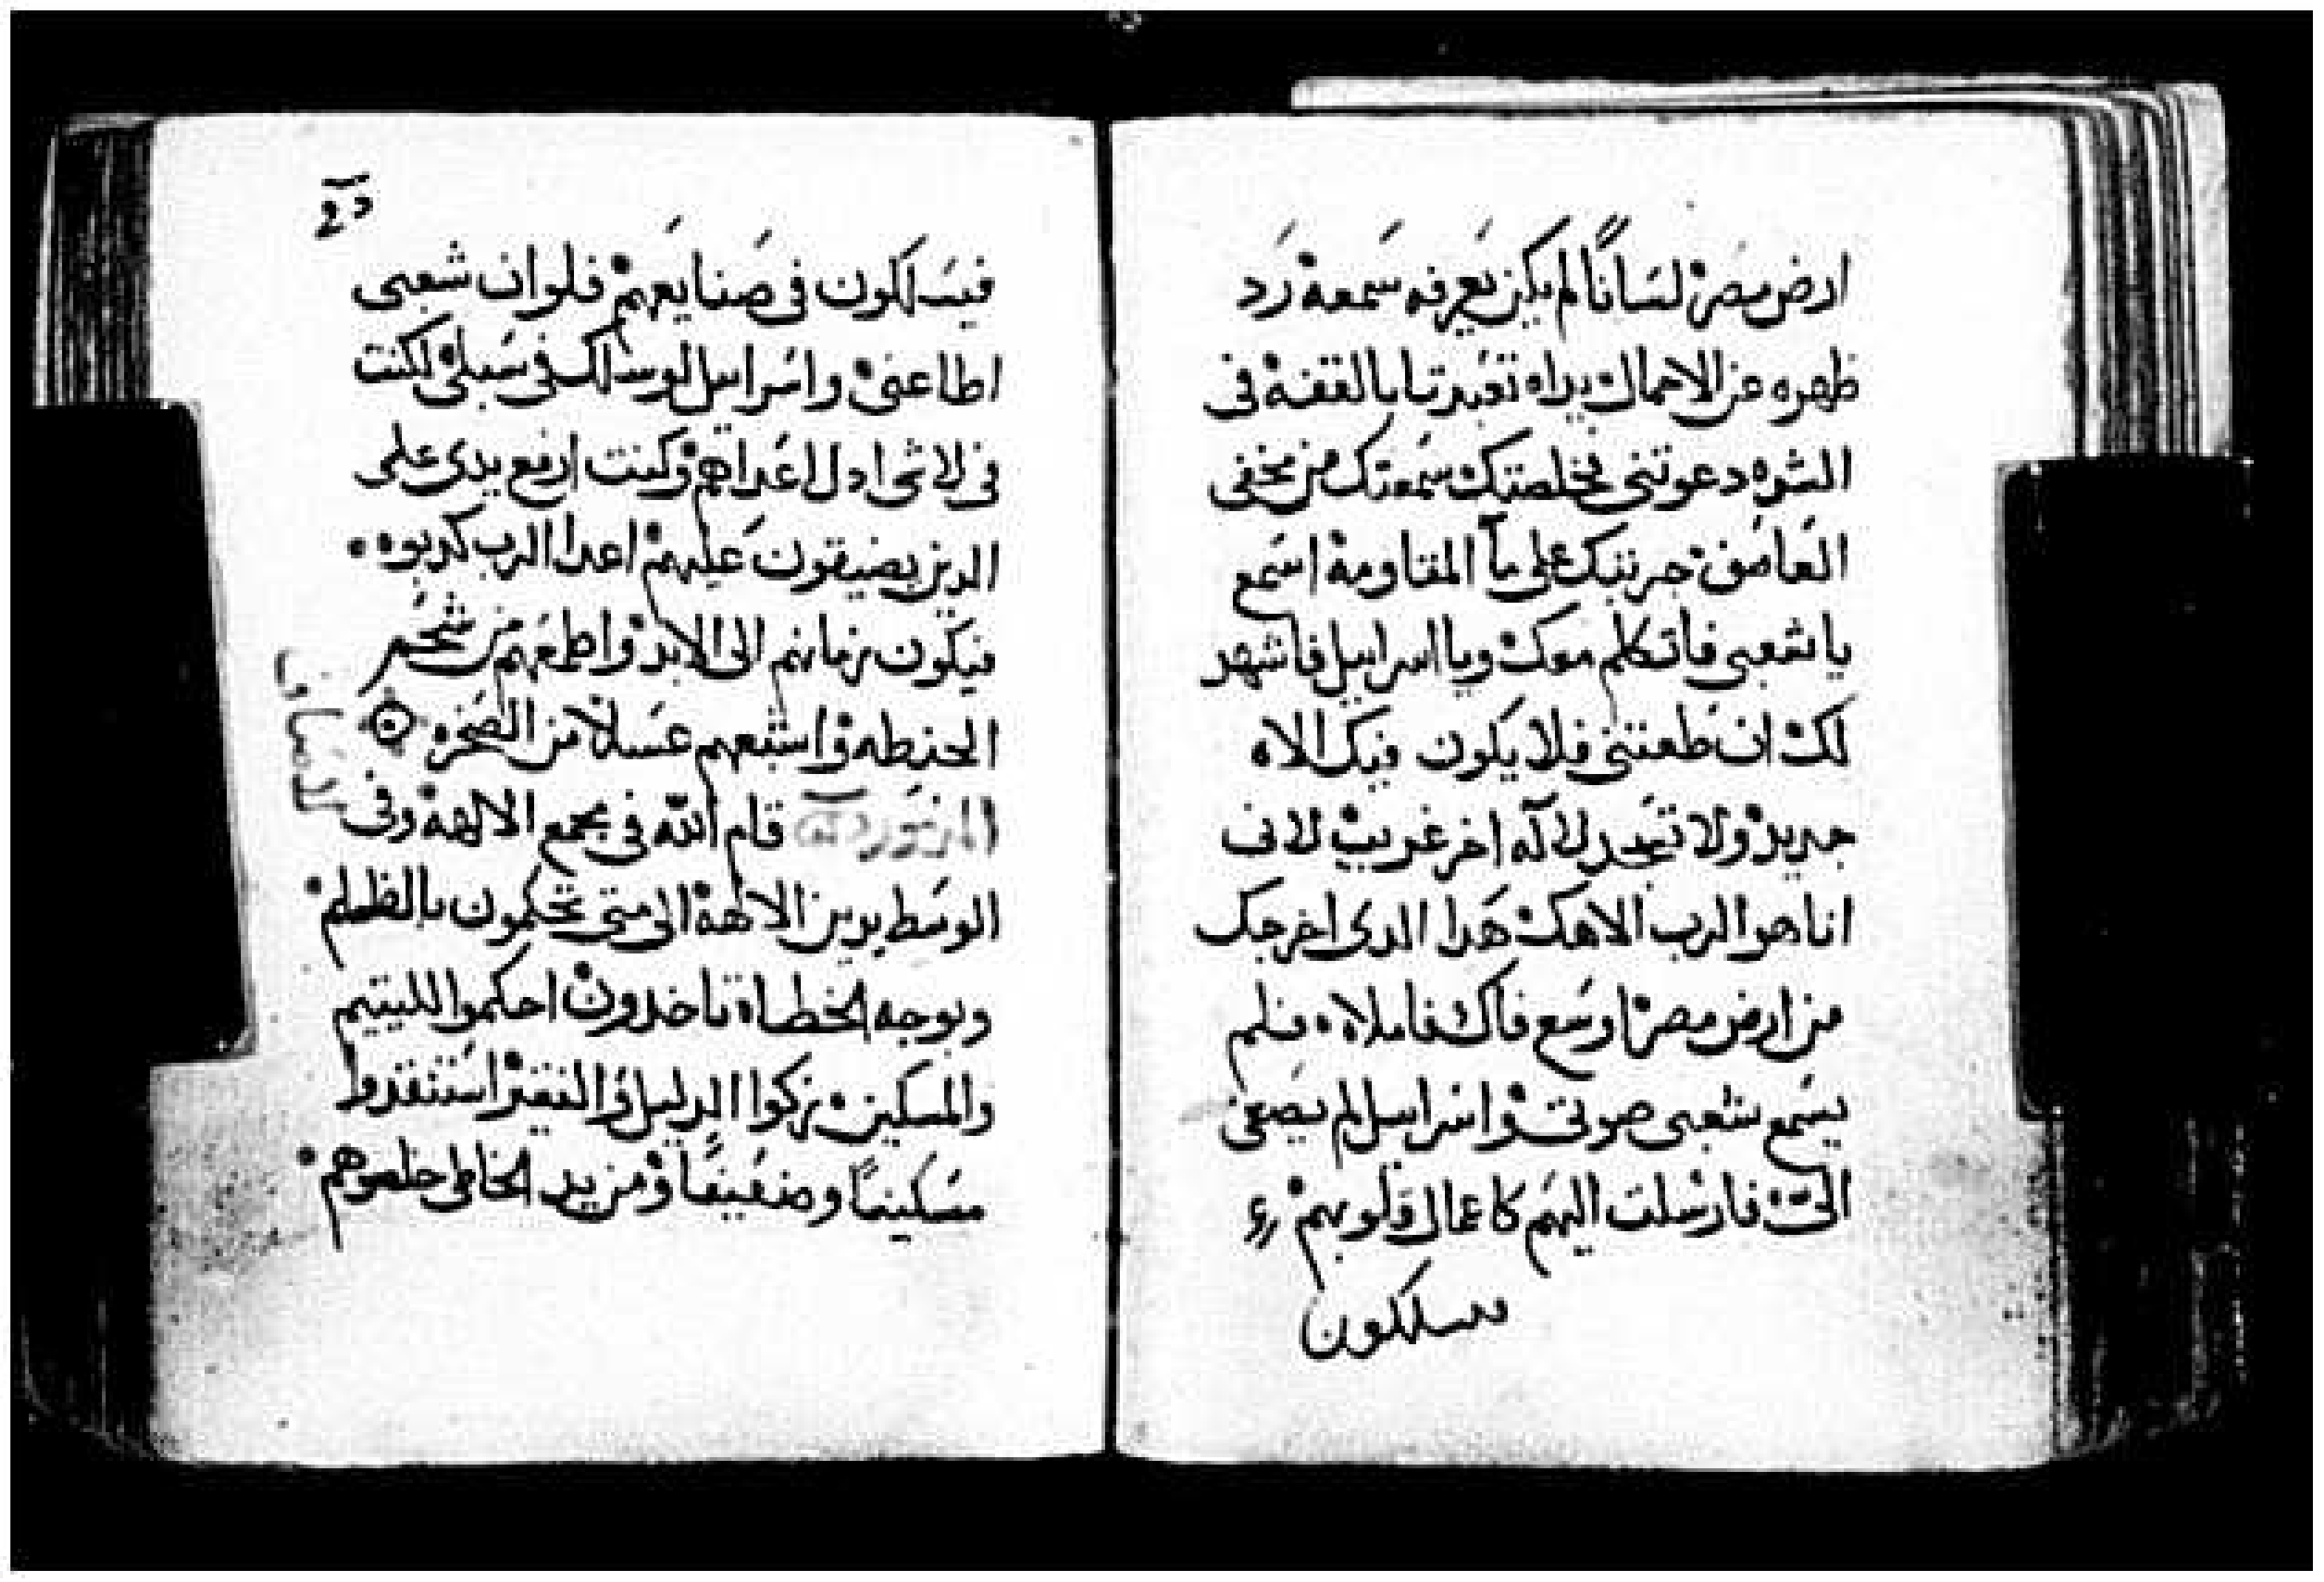 ارض مصر لسَانًا لم يكن يعرفه سَمعه رَد
ظهره عن الاحمال يداه تعبدتا بالقفه فى
الشده دعوتنى فخلصتك سمعتك من مخفى
العَاصف جربتك على مآ المقاومه اسَمع
يا شعبى فاتكلم معك ويا اسراييل فاشهد
لك ان طعتنى فلا يكون فيك الاه
جديد ولا تسجد لاله اخر غريب لانى
انا هو الرب الاهك هدا الدى اخرجك
من ارض مصر اوسَع فاك فاملاه فلم
يسَمع شعبى صوتى واسراييل لم يصغى
الىّ فارسَلت اليهم كاعمال قلوبهم
فيسلكون
فيسَلكون فى صَنايعَهم فلو ان شعبى
اطاعنى واسَراييل لو سلك فى سَبلى لكنت
فى لا شى ادل اعَداهم وكنت ارفع يدى على
الدين يضيقون عَليهم اعدا الرب كدبوه
فيَكون زمانهم الى الابد واطعَمهم من شحَم
الحنطه واشبعهم عسَلاً من الصَخره
المزمور قام الله فى مجمع الالهه وفى
الوسَط يدين الالهه الى متى تحكمون بالظلم
وبوجه الخطاه تاخدون احكموا لليتيم
والمسَكين زكوا الدليل والفقير استنقدوا
مسَكينًا وضعَيفًا ومن يد الخاطى خلصوهم